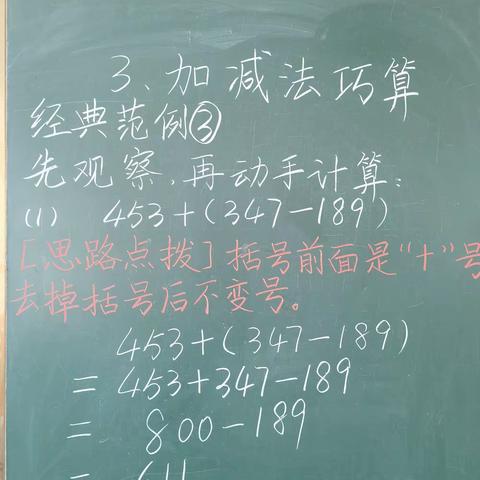 3、加减法巧算
经典范例③
先观察,再动手计算:
(1) 453+(347-189)
[思路点拨]括号前面是“+”号
去掉括号后不变号。
453+(347-189)
=453+347-189
= 800-189
= 611